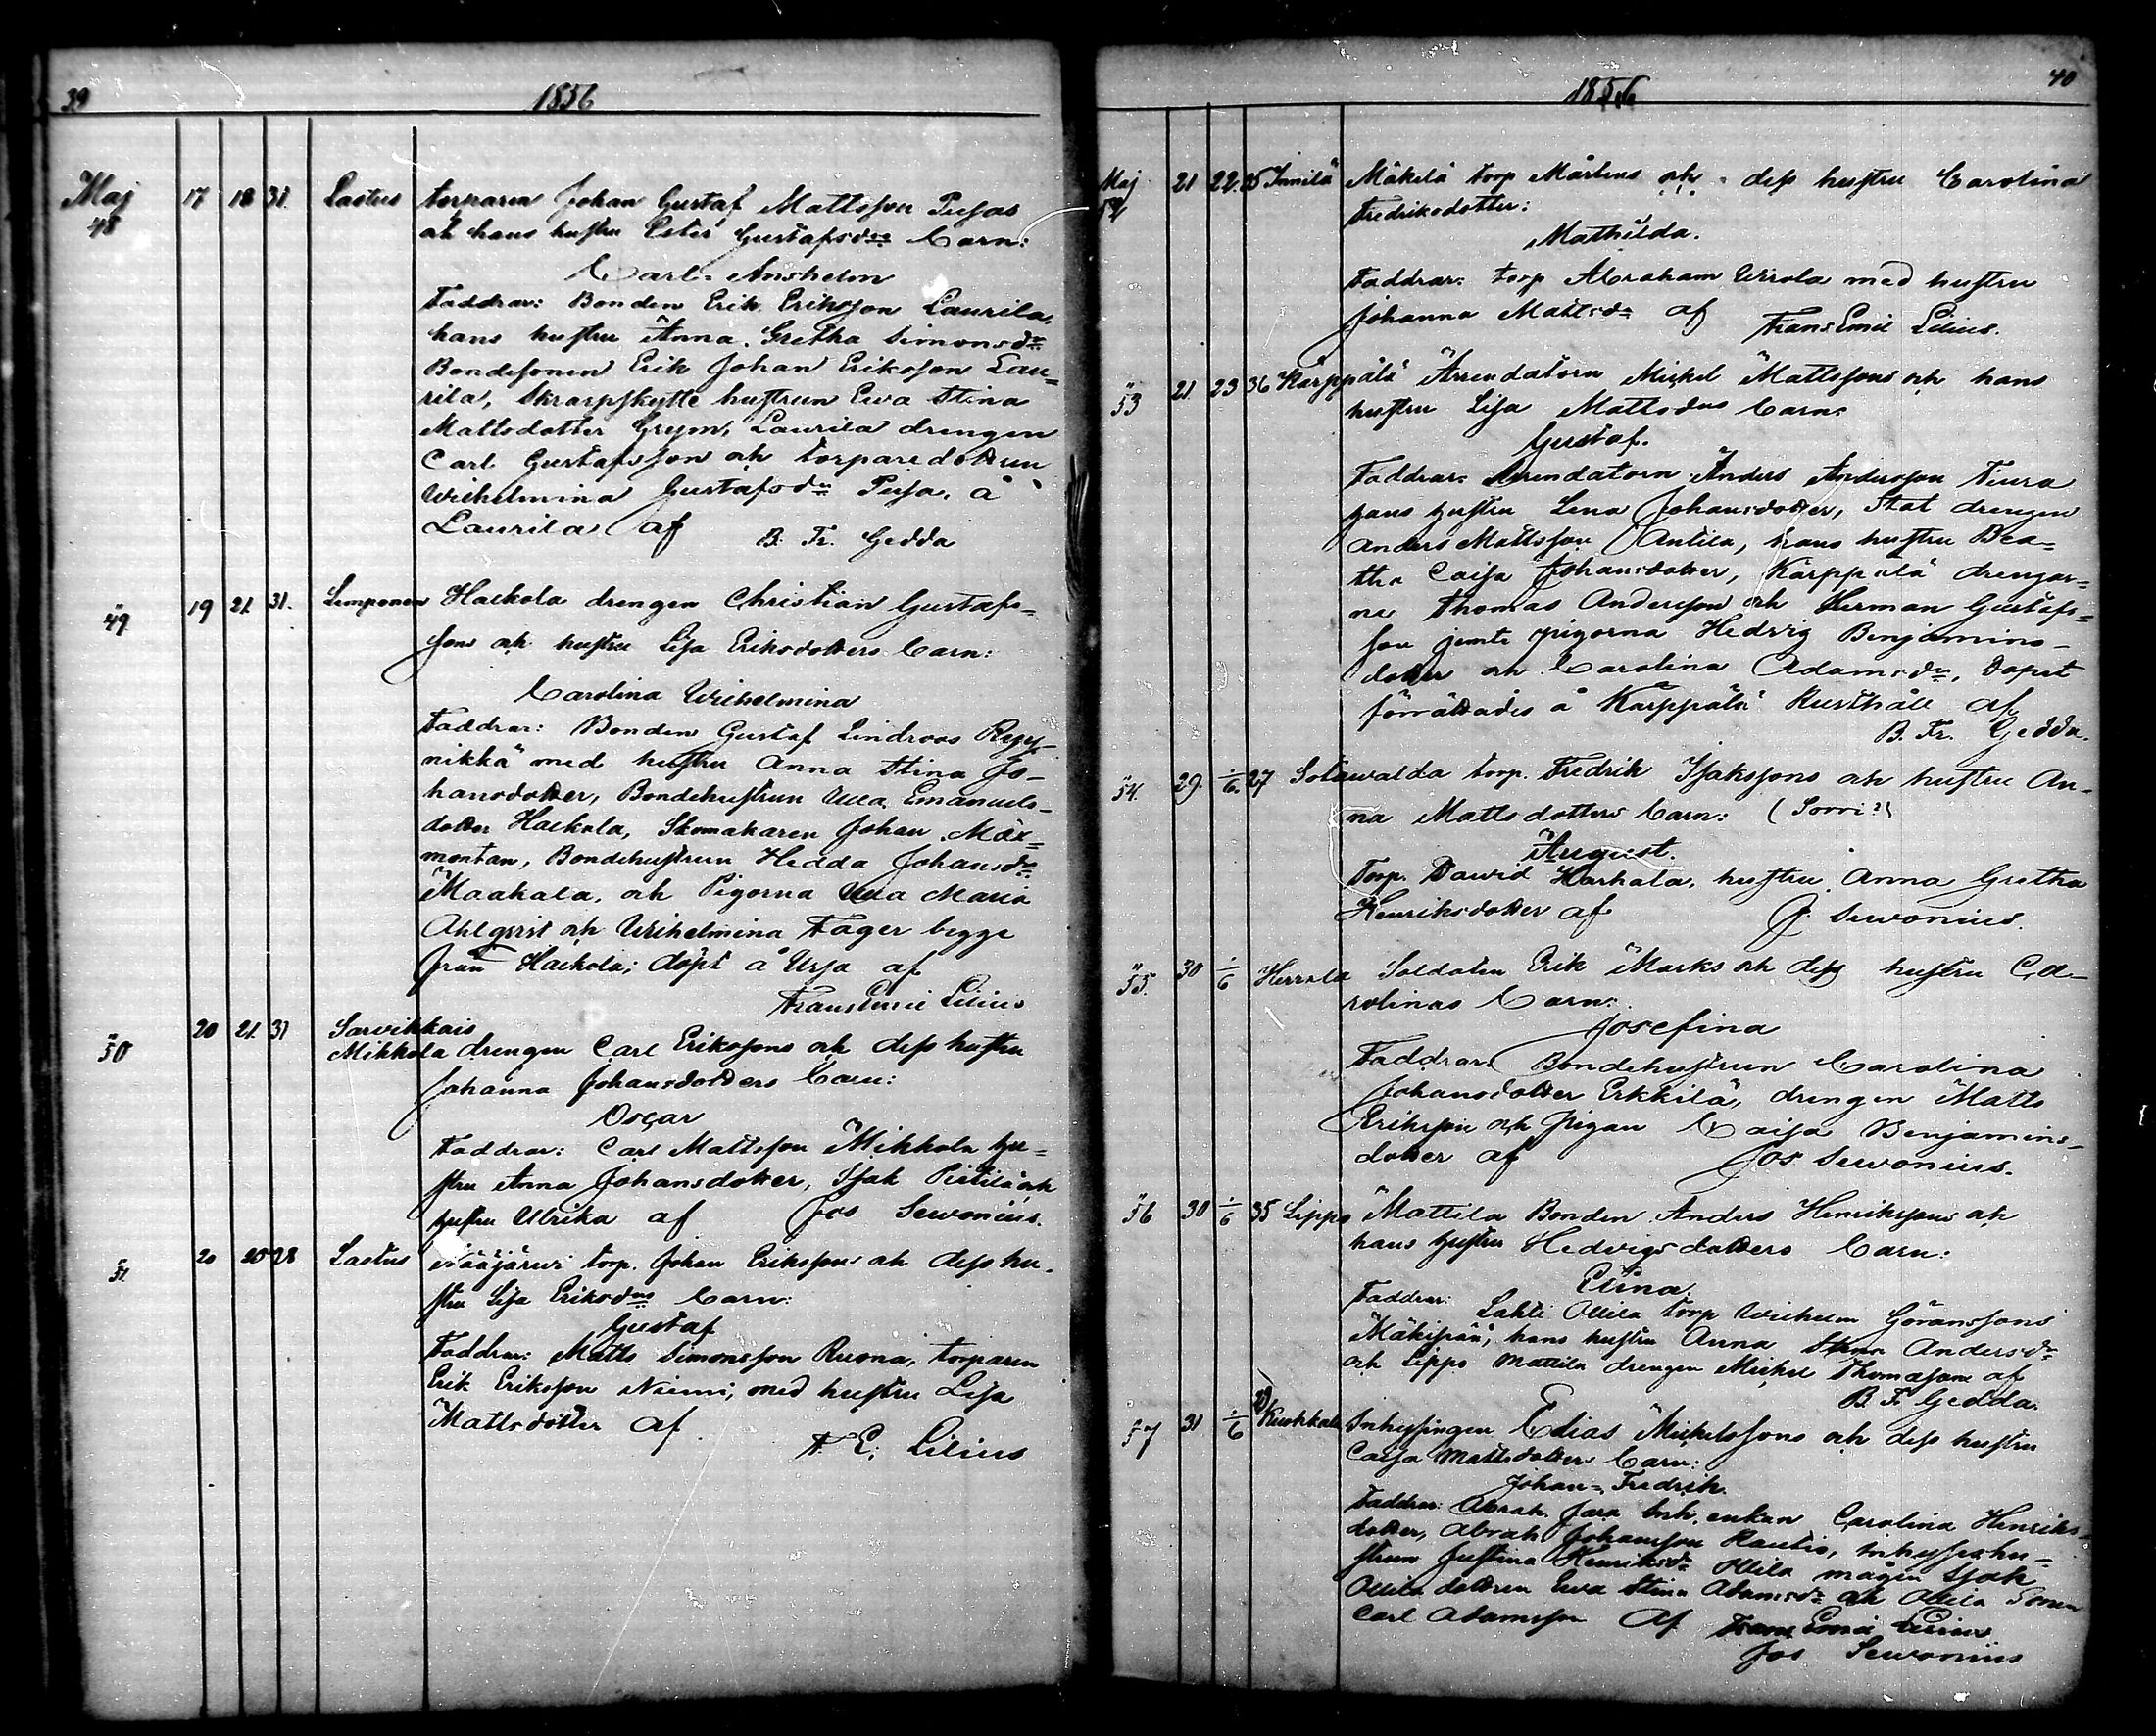 39
1856
Maj 48 17 18 31. Lastus torparen Johan Gustaf Mattsson Pusas
och hans hustru Ester Gustafsdrs barn:
Carl Anshelm
Faddrar: Bonden Erik Eriksson Laurila,
hans hustru Anna Gretha Simonsdr
Bondesonen Erik Johan Eriksson Lau=
rila, Skrarpskytte hustrun Ewa Stina
Mattsdotter Grym, Laurila drengen
Carl Gustafsson och torparedottren
Wilhelmina Gustafsdr Pusa, å
Laurila af B. Fr. Gedda
" 49 19 21. 31. Limponen Haekola drengen Christian Gustafs=
sons och hustru Lisa Eriksdotters barn:
Carolina Wilhelmina
Faddrar: Bonden Gustaf Lindroos
nikkä med hustru Anna Stina Jo=
hansdotter, Bondehustrun Ulla Emanuels=
dotter Haekola, Skomakaren Johan
montan, Bondehustrun Hedda Johansdr
Maakala, och Pigorna Ulla Maria
Ahlqvist och Wilhelmina Fager begge
från Haekola; döpt å Ursa af
Frans Emil Lilius
" 50 20 21. 31 Sarvikkais
Mikkola drengen Carl Erikssons och dess hustru
Johanna Johansdotters barn:
Oscar
Faddrar: Carl Mattsson Mikkola hu=
stru Anna Johansdotter, Isak Pietilä och
hustru Ulrika af Jos Sewonius.
" 51 20 25 28 Lastus Nääjärwi torp. Johan Erikssons och dess hu=
stru Lisa Eriksdrs barn:
Gustaf
Faddrar: Matts Simonsson Ruona, torparen
Erik Eriksson Niemi, med hustru Lisa
Mattsdotter af
F. E. Lilius
40
1856
Maj 52 21 22. 25 Innilä Mäkelä torp Mårtens och dess hustru Carolina
Fredriksdotter:
Mathilda.
Faddrar: torp Abraham Wirola med hustru
Johanna Mattsdr af Frans Emil Lilius.
" 53 21. 23 36 Kärppälä Arrendatorn Mickel Mattssons och hans
hustru Lisa Mattsdrs barn:
Gustaf.
Faddrar: Arrendatorn Anders Andersson Niura
hans hustru Lena Johansdotter, Stat drengen
Anders Mattsson Antila, hans hustru Bea=
tha Caisa Johansdotter, Kärppälä drengar=
ne Thomas Andersson och Herman Gustafs=
son jemte pigorna Hedvig Benjamins=
dotter och Carolina Adamsdr, dopet
förrättades å Kärppälä Rusthåll af
B. Fr. Gedda.
" 54. 29. 1/6. 27 Sotawalda torp. Fredrik Isakssons och hustru An=
na Mattsdotters barn: (Sorri?)
August.
Torp. Dawid Harhala, hustru Anna Gretha
Henriksdotter af J. Sewonius.
" 55. 30 1/6 Herrala Soldaten Erik Marks och dess hustru Ca=
rolinas barn:
Josefina
Faddrar: Bondehustrun Carolina
Johansdotter Erkkilä, drengen Matts
Eriksson och pigan Caisa Benjamins=
dotter af Jos Sewonius.
" 56 30 1/6 35 Lippo Mattila Bonden Anders Henrikssons och
hans hustru Hedvigsdotters barn:
Elina.
Faddrar: Lahti Ollila torp Wilhelm Göranssons
Mäkipää, hans hustru Anna Stina Andersdr
och Lippo Mattila drengen Mickel Thomasson af
B. F. Gedda.
" 57 31 1/6 39 Kuokkala Inhysingen Elias Mickelssons och dess hustru
Caisa Mattsdotters barn:
Johan=Fredrik.
Faddrar: Abrah. Jara Inh. enkan Carolina Henriks=
dotter, Abrah Johansson Rautio, inhyseshu=
strun Justina Henriksdr Ollila mågen Isak
Ollila dottren Ewa Stina Adamsdr och Ollila Sonen
Carl Adamsson af Frans Emil Lilius
Jos Sewonius